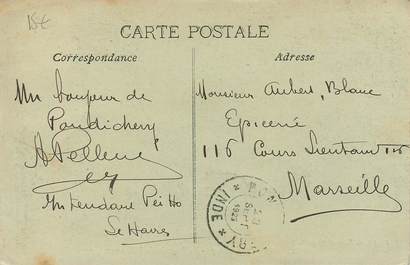 15€
CARTE POSTALE
Correspondance
Adresse
Un bonjour de
Pondichery
Intendant Pei Ho
Le Havre
Monsieur Aubert, Blanc
Epicerie
116 Cours Lieutaud 116
Marseille
INDE